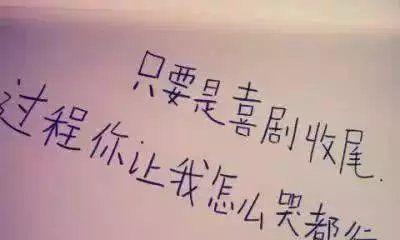 只要是喜剧收尾.
过程你让我怎么哭都行